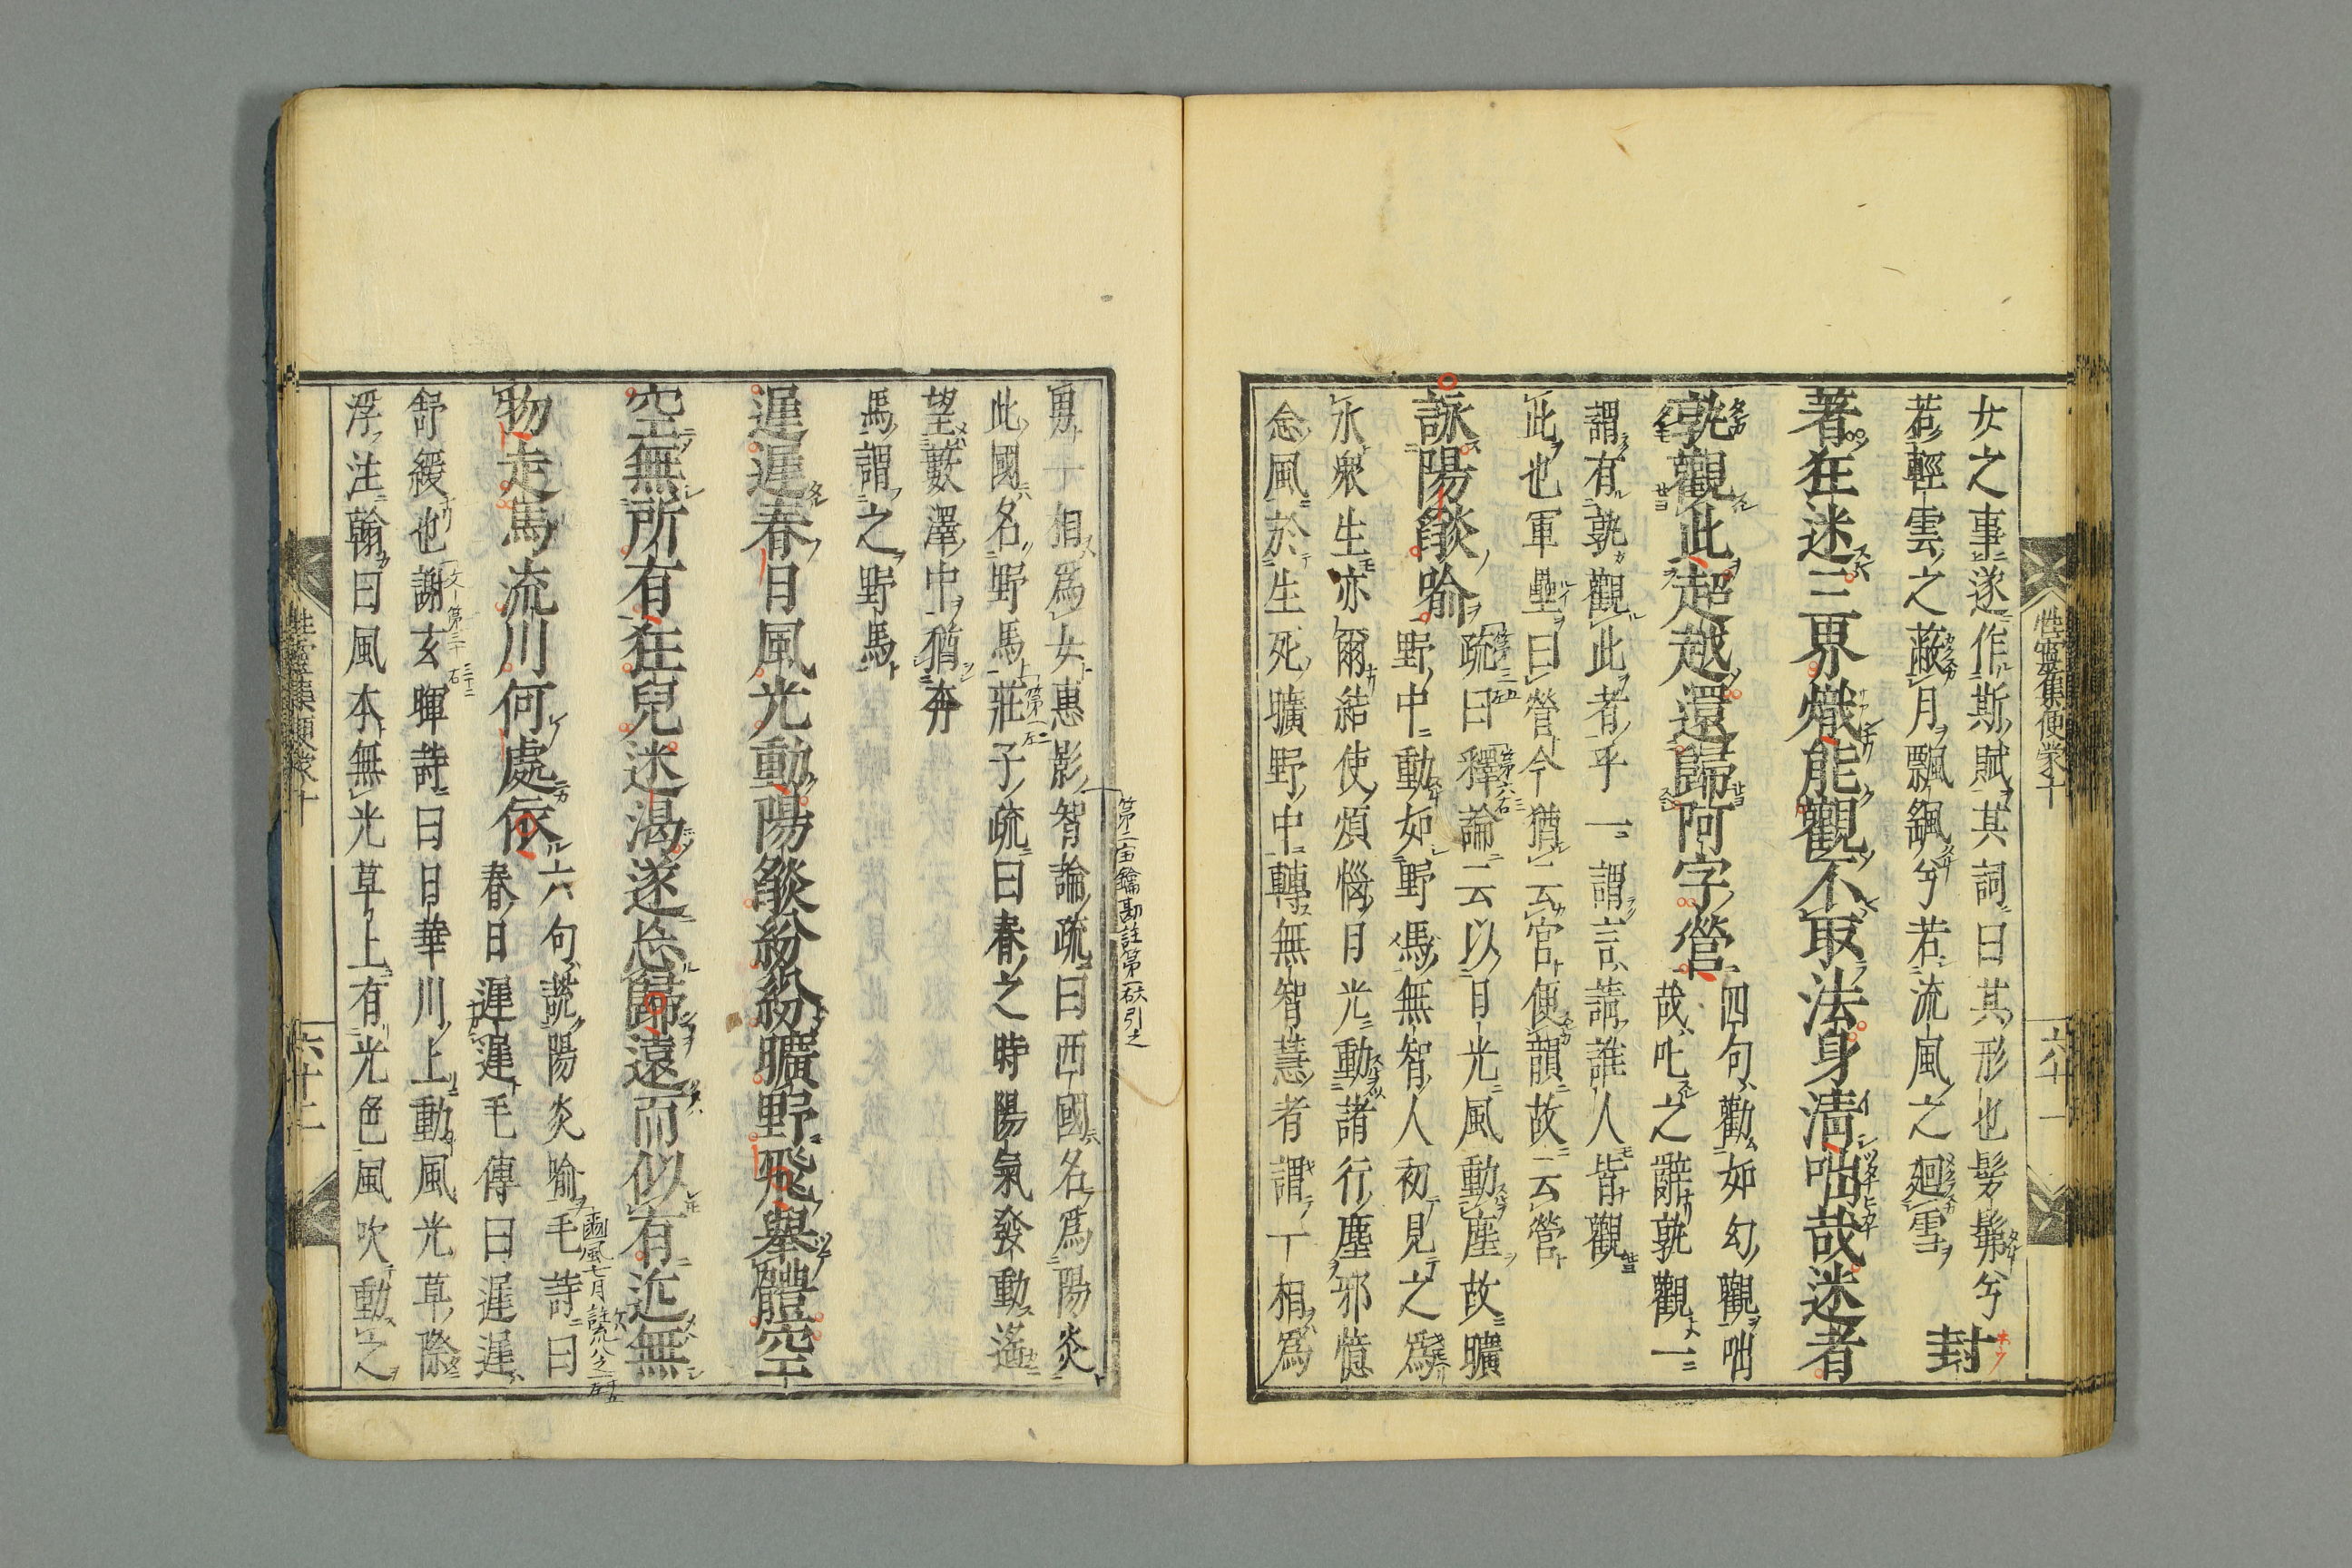 女之事遂作斯賦其詞曰其形也髣髴兮
若輕雲之蔽月飄颻兮若流風之廻雪 封
著狂迷三界熾能觀不取法身淸咄哉迷者
孰觀此超越還歸阿字營
四句勸如幻觀咄
哉叱之辭孰觀一
謂有孰觀此者乎一謂言請誰人皆觀
此也軍壘曰營今猶云官便韻故云營
詠陽燄喩
疏曰釋論云以日光風動塵故曠
野中動如野馬無智人初見之爲
水衆生亦爾結使煩惱日光動諸行塵邪憶
念風於生死曠野中轉無智慧者謂一相爲
性靈集便蒙十
六十一
男一相爲女惠影智論疏曰西國名爲陽炎
此國名野馬莊子疏曰春之時陽氣發動遙
望藪澤中猶奔
馬謂之野馬
遲遲春日風光動陽燄紛紛曠野飛擧體空
空無所有狂兒迷渴遂忘歸遠而似有近無
物走馬流川何處依
六句詠陽炎喩毛詩曰
春日遲遲毛傳曰遲遲
舒緩也謝玄暉詩曰日華川上動風光草際
浮注翰曰風本無光草上有光色風吹動之
第二宝鑰勘註第一
引之
性靈集便蒙十
六十二